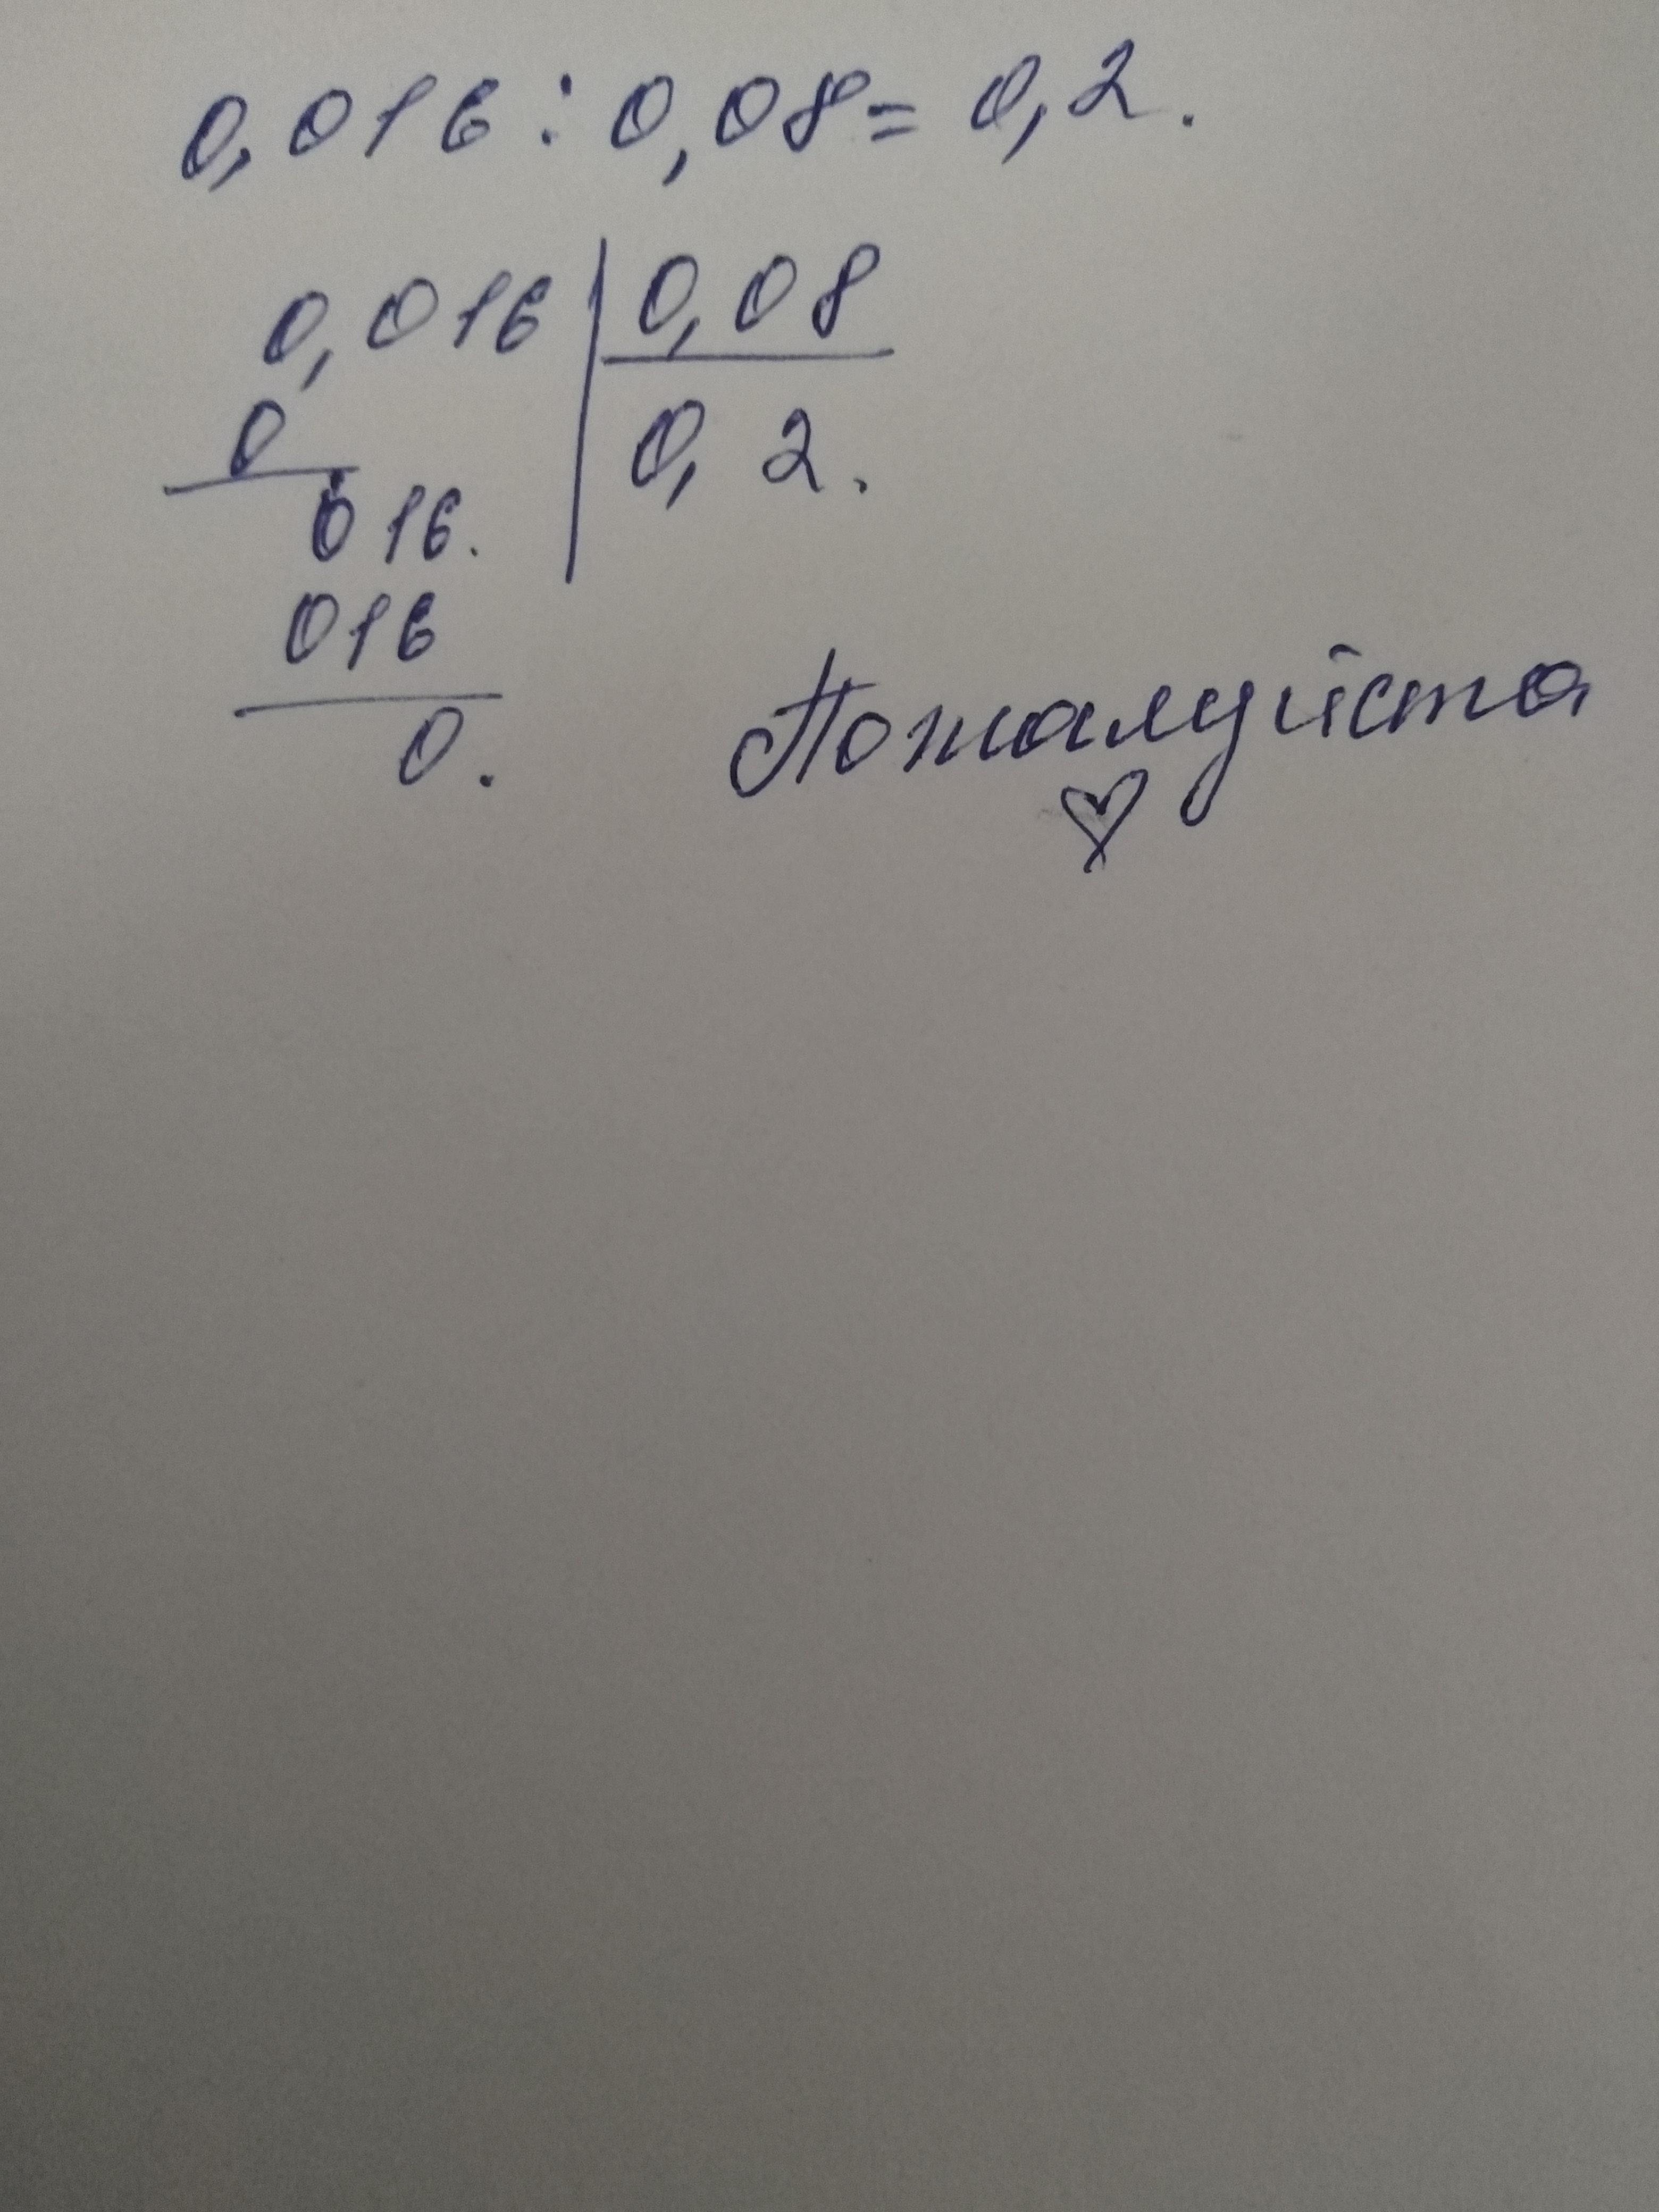 0,016 : 0,08 = 0,2.
0,016 | 0,08
0 0,2.
016.
016
0.
Пожалуйста
♡